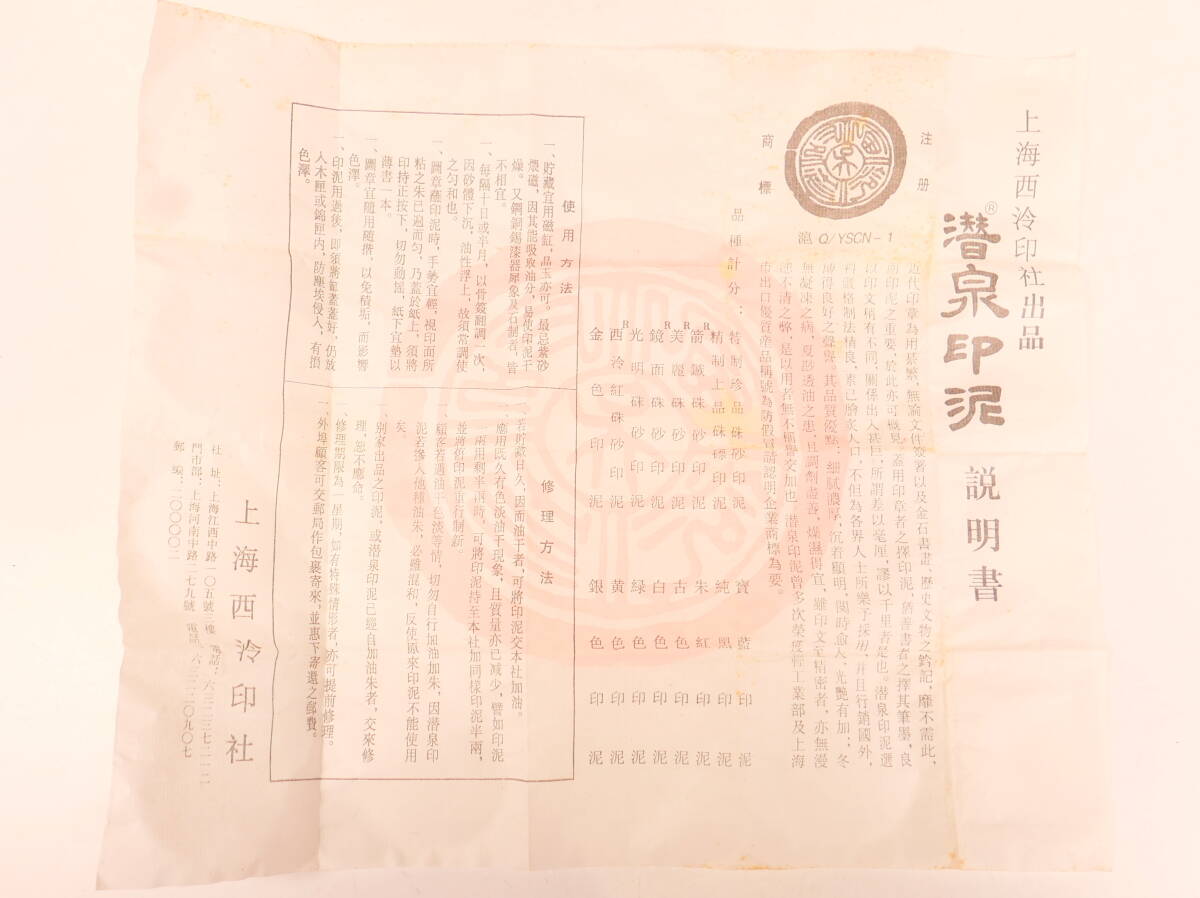 上海西泠印社出品
潛泉印泥
®
説明書
注册
商標
滬 Q/YSCN-1
近代印章為用綦繁，無論文件簽署以及金石書畫，歷史文物之鈐記，靡不需此，
而印泥之重要，於此亦可概見。蓋用印章者之擇印泥，猶善書者之擇其筆墨，良
以印文稍有不同，關係出入甚巨，所謂差以毫厘，謬以千里者是也。潛泉印泥選
料嚴格制法精良，素已膾炙人口，不但為各界人士所樂于採用，并且行銷國外，
博得良好之聲譽。其品質優點：細膩濃厚，沉着顯明，閱時愈久，光艷有加；冬
無凝凍之病，夏鮮透油之患，且調劑盡善，燥濕得宜，雖印文至精密者，亦無漫
漶不清之弊，是以用者無不稱譽交加也。潛泉印泥曾多次榮獲輕工業部及上海
市出口優質産品稱號為防假冒請認明企業商標為要。
品種計分：
特制珍品硃砂印泥 寶藍印泥
精制上品硃磦印泥 純黑印泥
R箭鏃硃砂印泥 朱紅印泥
R美麗硃砂印泥 古色印泥
R鏡面硃砂印泥 白色印泥
光明硃砂印泥 綠色印泥
R西泠紅硃砂印泥 黄色印泥
金色印泥 銀色印泥
使用方法
一、貯藏宜用磁缸，晶玉亦可。最忌紫砂
煨磁，因其能吸取油分，易使印泥干
燥。又銅鋼錫漆器犀象及石制者，皆
不相宜。
一、每隔十日或半月，以骨簽翻調一次，
因砂體下沉，油性浮上，故須常調使
之匀和也。
一、圖章蘸印泥時，手勢宜輕，視印面所
粘之朱已遍而匀，乃蓋於紙上，須將
印持正按下，切勿動搖，紙下宜墊以
薄書一本。
一、圖章宜隨用隨揩，以免積垢，而影響
色澤。
一、印泥用過後，即須將缸蓋蓋好，仍放
入木匣或錦匣内，防塵埃侵入，有損
色澤。
修理方法
一、若貯藏日久，因而油干者，可將印泥交本社加油。
一、應用既久有色淡油干現象，且質量亦已减少，譬如印泥
一兩用剩半兩時，可將印泥持至本社加同樣印泥半兩，
並將舊印泥重行制新。
一、顧客若遇油干色淡等情，切勿自行加油加朱，因潛泉印
泥若滲入他種油朱，必難混和，反使原來印泥不能使用
矣。
一、别家出品之印泥，或潛泉印泥已經自加油朱者，交來修
理，恕不應命。
一、修理期限為一星期，如有特殊情形者，亦可提前修理。
一、外埠顧客可交郵局作包裹寄來，並惠下寄還之郵費。
上海西泠印社
社址：上海江西中路一〇五號二樓 電話：六三二三七二一二
門市部：上海河南中路二七九號 電話：六三二二〇九〇七
郵編：二〇〇〇〇二